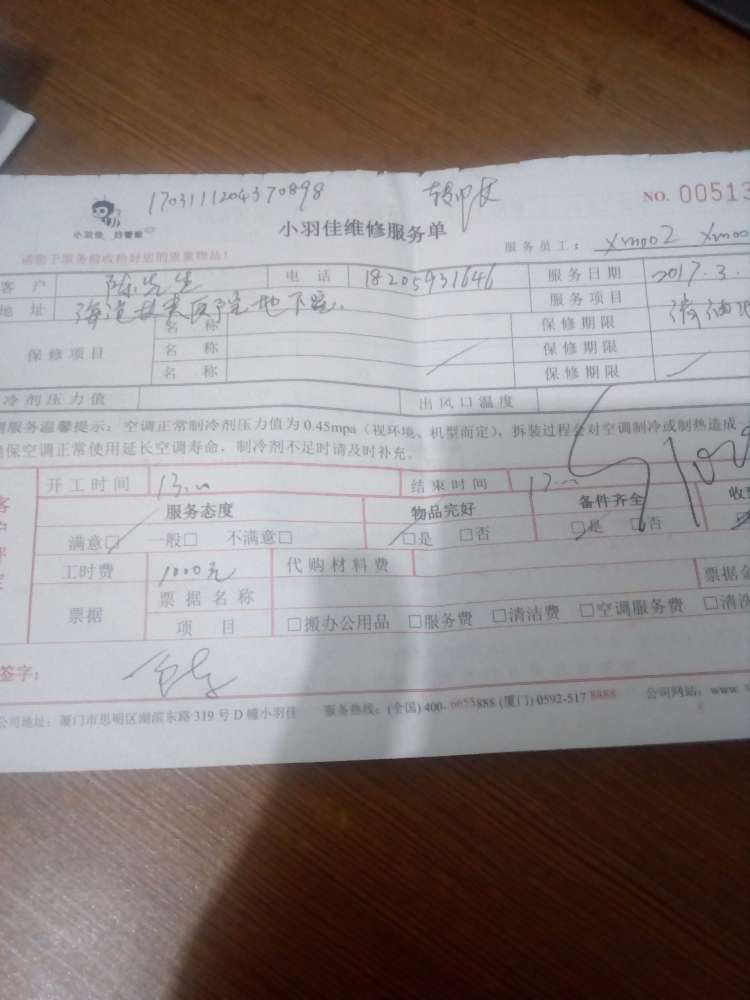 170311120437 0898
NO. 00513
小羽佳 好管家
小羽佳维修服务单
服务员工： xm002 xm00
请您于服务前收拾好您的贵重物品！
客户 陈先生 电话 18205931646 服务日期 2017.3.
地址 地下 服务项目
保修项目 名称 保修期限
名称 保修期限
名称 保修期限
冷剂压力值 出风口温度
调服务温馨提示：空调正常制冷剂压力值为0.45mpa（视环境、机型而定），拆装过程会对空调制冷或制热造成
确保空调正常使用延长空调寿命，制冷剂不足时请及时补充。
开工时间 13: 结束时间
服务态度 物品完好 备件齐全 收
满意□ 一般□ 不满意□ □是 □否 □是 □否
工时费 1000元 代购材料费 票据金
票据 票据名称
项目 □搬办公用品 □服务费 □清洁费 □空调服务费 □清洗
签字：
公司地址：厦门市思明区湖滨东路319号D幢小羽佳 服务热线：(全国) 400-6655888 (厦门) 0592-517 8888 公司网站：www.